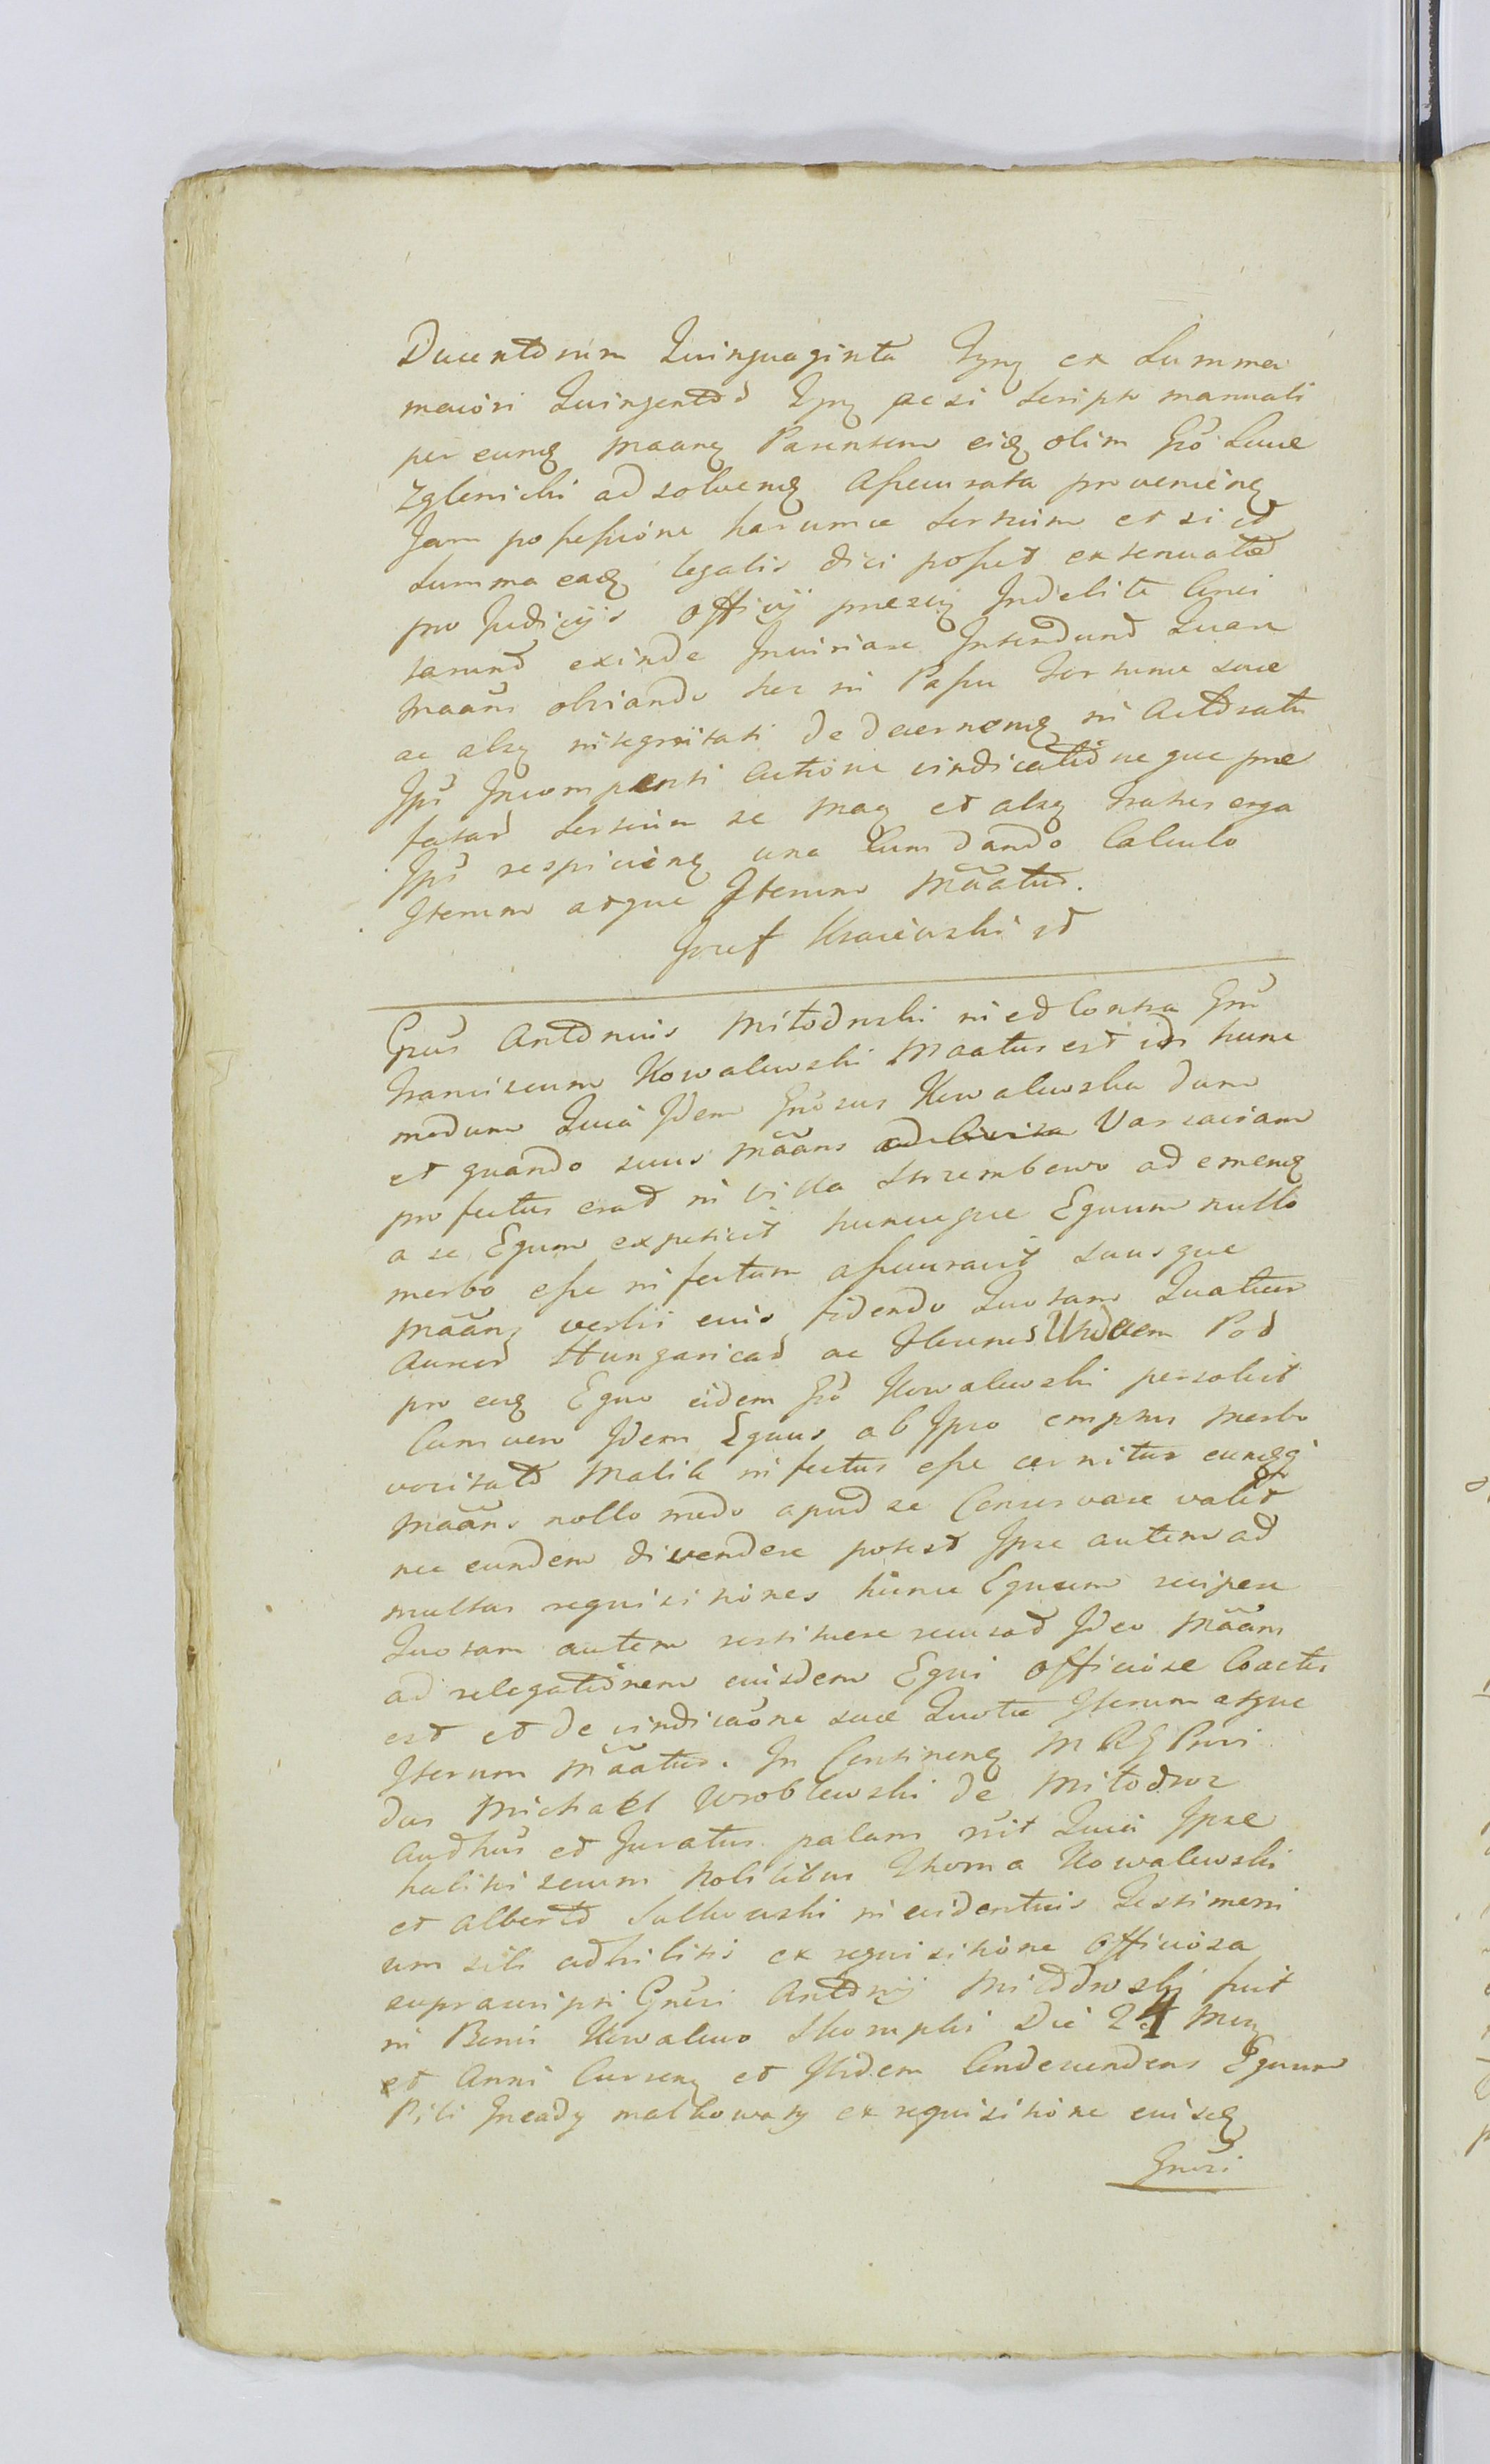 Ducentorum Quinquaginta Tynf ex Summa
maiori Quingentor Tynf ac si Scripto manuali
per eunq Maanq Parentem eiq olim Gso Lucae
Zglenicki ad solvenq assecurata provenienq
Jam possessione harumce Sortium et si et
Summa eaq legalis dici posset extenuata
pro Judicijs officij
tarund exinde Injuriare Intendund Quare
Maans obviando her in Passu Fortunae suae
ac alrq integritati de decernenq in Actoratu
Ipsi Incompetenti Actione vindicatione que prae
fatar Sortium se Mag et alrq Fratres erga
Ipsi respicienq una Cum dando Calculo
Iterum atque Iterum Mãatur.
Jozef Kraiewski st
Gsus Antonius Mitodrski ni ed Contra Gsm
Franciscum Kowalewski Maatus est in hunc
modum Quia Idem Gnrosus Kowalewski dum
et quando suus Mãans Varsaviam
profectus erat in villa Strzembowo ad emenq
a se Equm expetivit huncque Equum nullo
morbo esse infectum assecuravit suusque
Mãanq verbis eius fidendo Quotam Quatuor
Aureor Hungaricar ac Flenos Undecem Pol
pro eoq Equo eidem Gso Kowalewski persolvit
Cum vero Idem Equus ab Ipso emptus Morbo
vocitato Malik infectus esse cernitur eumqq
Mãans nollo modo apud se Conservare valet
nec eundem divendere potest Ipse autem ad
multas requisitiones hunc Equum recipere
Quotam autem restituere recusat Ideo Mãans
ad relegationem eiusdem Equi officiose Coactus
est et de vindicaõne suae Quotae Iterum atque
Iterum Mãatur. In Continenq M R G Provi
dus Michael Wroblewski de Mitodroz
Audhus et Juratus palam rcit Quia Ipse
habitis secum Nobilibus Thoma Kowalewski
et Alberto Sulkowski in evidentius Testimoni
um sibi adhibitis ex requisitione officiosa
suprascripti Gnrsi Antonij Mitodrwski fuit
in Bonis Kowalewo Skorupki Die 24 Mens
et Anni Currenq et Ibidem Condescendens Equum
Pili Gniady malkowaty ex requisitione eiusq
Gnrsi